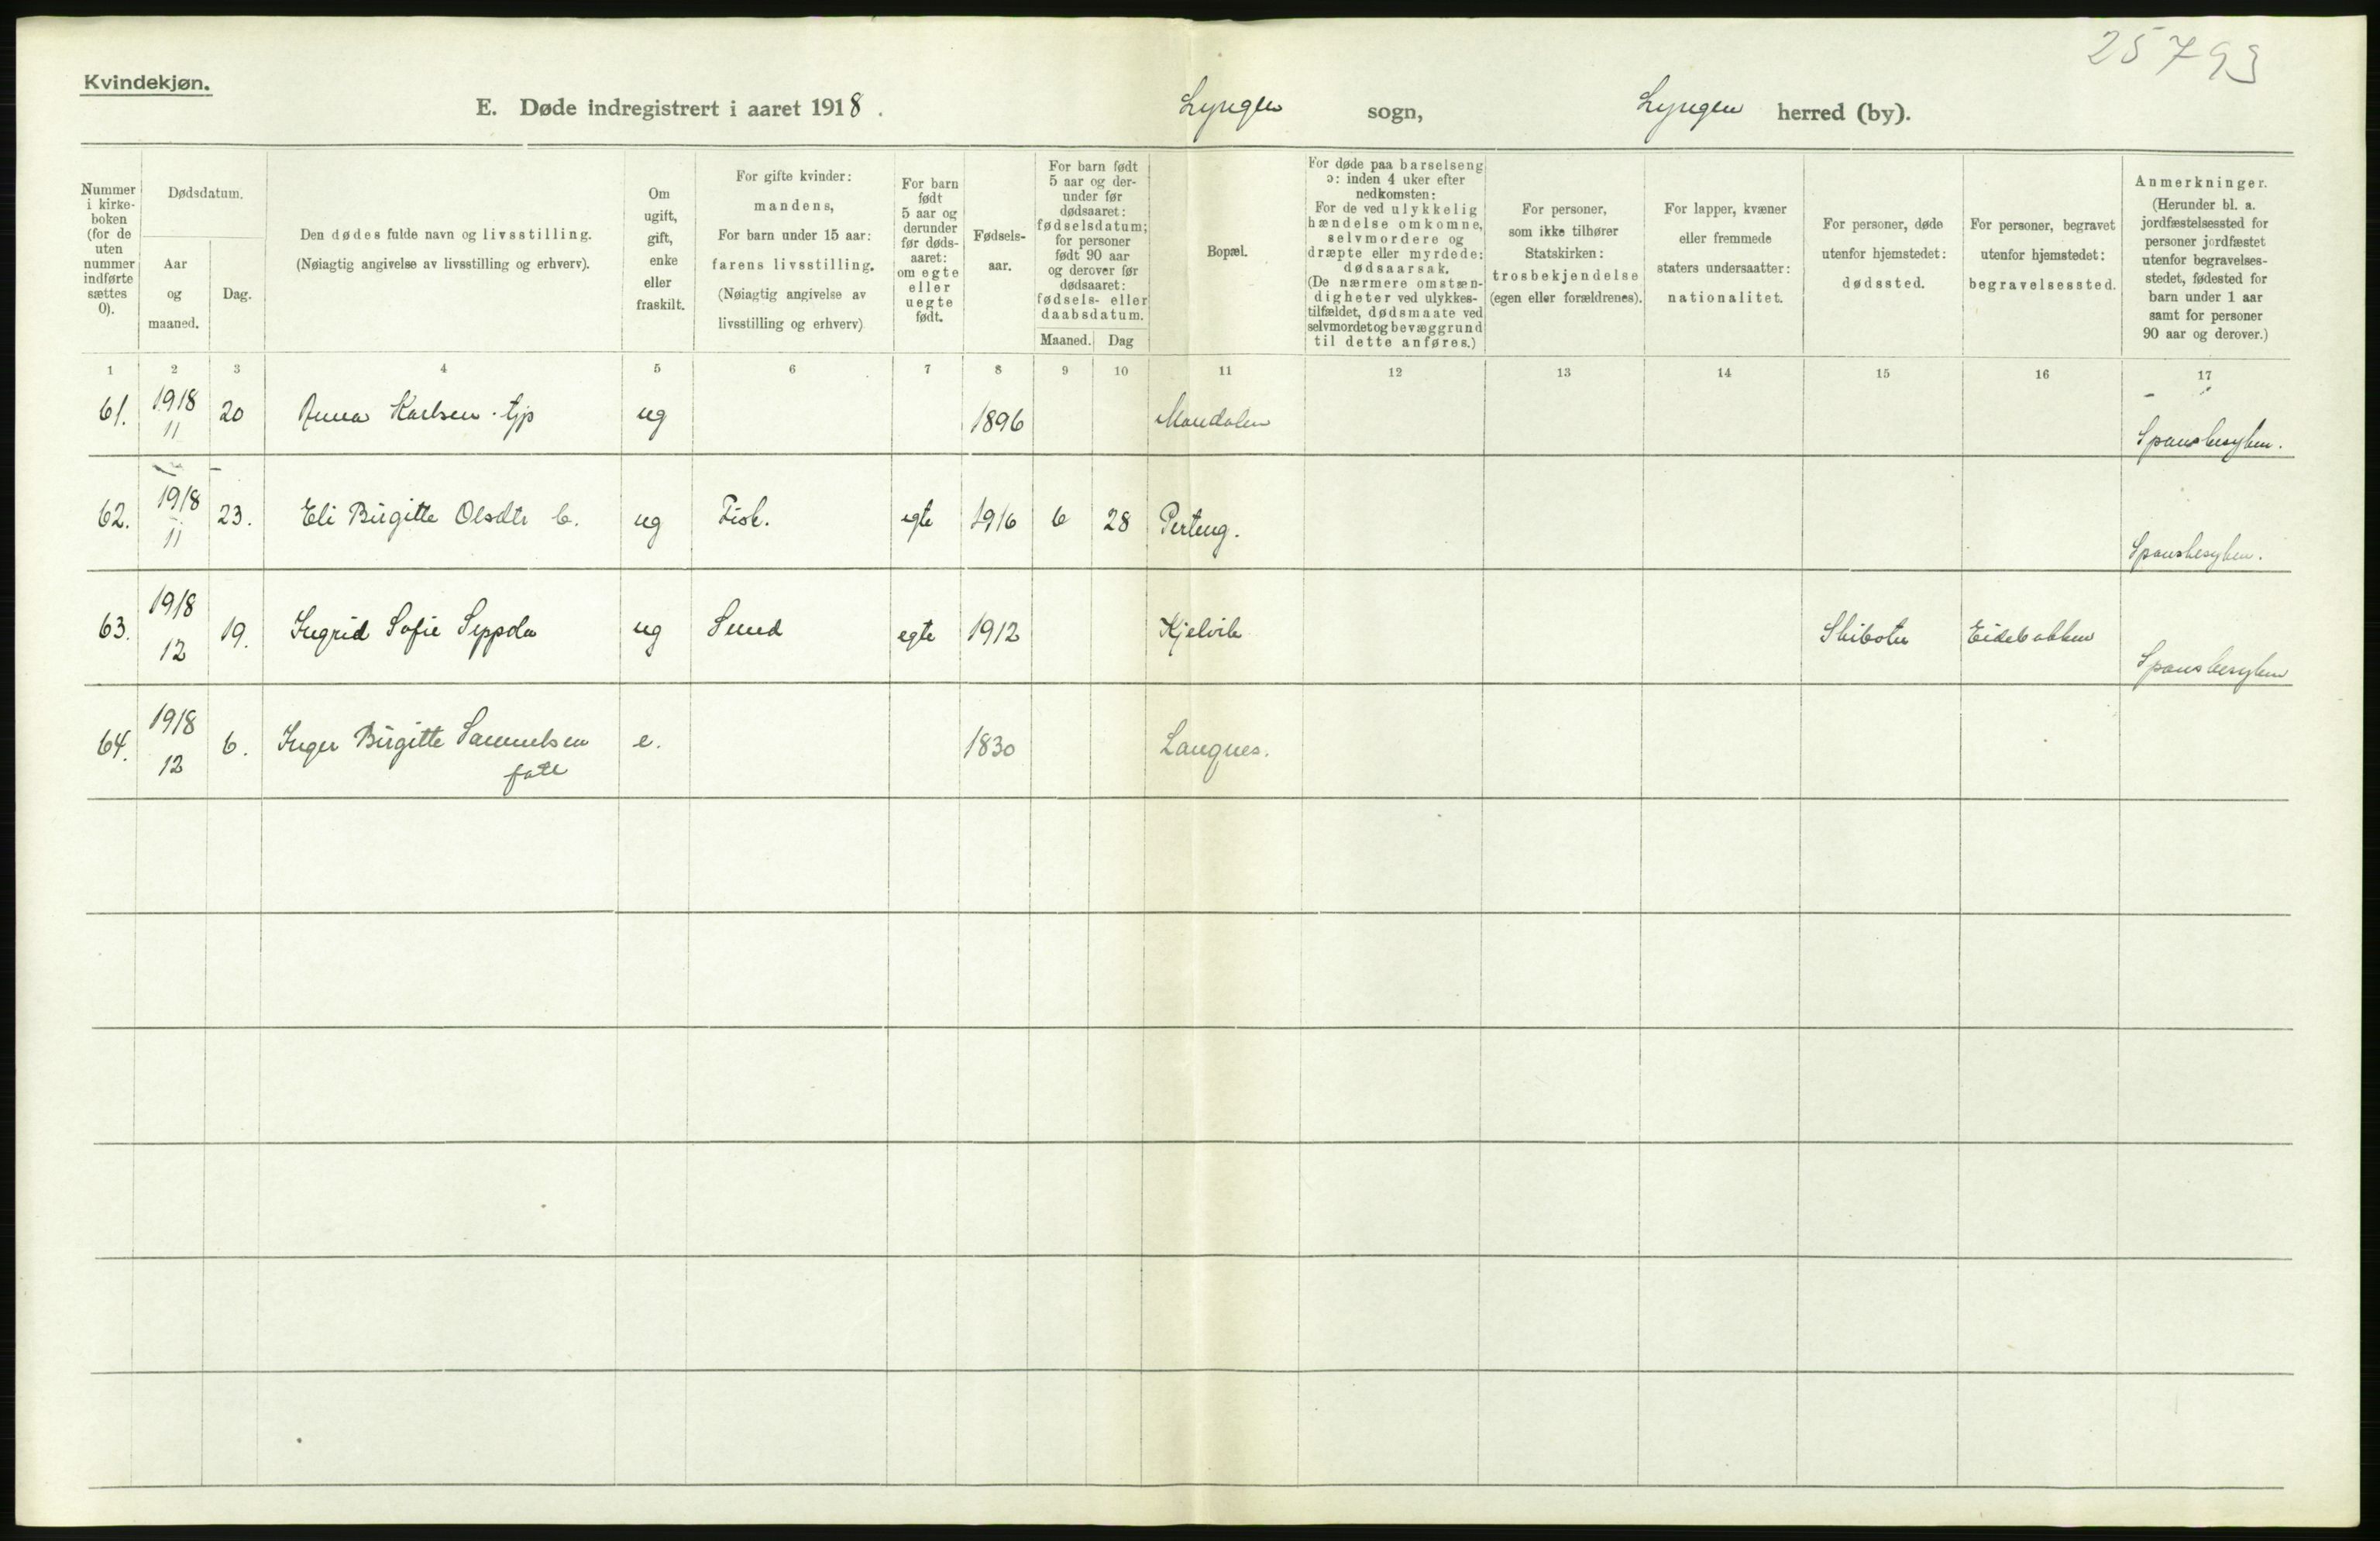 25793
Kvindekjøn.
E. Døde indregistrert i aaret 1918. Lyngen sogn, Lyngen herred (by).
Nummer i kirke-boken (for de uten nummer indførte sættes 0).
Dødsdatum.
Aar og maaned.
Dag.
Den dødes fulde navn og livsstilling.
(Nøiagtig angivelse av livsstilling og erhverv).
Om ugift, gift, enke eller fraskilt.
For gifte kvinder: mandens,
For barn under 15 aar: farens livsstilling.
(Nøiagtig angivelse av livsstilling og erhverv)
For barn født 5 aar og derunder før døds-aaret: om egte eller uegte født.
Fødsels-aar.
For barn født 5 aar og der-under før dødsaaret: fødselsdatum; for personer født 90 aar og derover før dødsaaret: fødsels- eller daabsdatum.
Maaned. Dag
Bopæl.
For døde paa barselseng ɔ: inden 4 uker efter nedkomsten:
For de ved ulykkelig hændelse omkomne, selvmordere og dræpte eller myrdede: dødsaarsak.
(De nærmere omstæn-digheter ved ulykkes-tilfældet, dødsmaate ved selvmordet og bevæggrund til dette anføres.)
For personer, som ikke tilhører Statskirken: trosbekjendelse (egen eller forældrenes).
For lapper, kvæner eller fremmede staters undersaatter: nationalitet.
For personer, døde utenfor hjemstedet: dødssted.
For personer, begravet utenfor hjemstedet: begravelsessted.
Anmerkninger.
(Herunder bl. a. jordfæstelsessted for personer jordfæstet utenfor begravelses-stedet, fødested for barn under 1 aar samt for personer 90 aar og derover.)
1 2 3 4 5 6 7 8 9 10 11 12 13 14 15 16 17
61. 1918 11 20 Anna Karlsen. tjp ug 1896 Mandalen Spanskesyken.
62. 1918 11 23. Eli Birgitte Olsdtr b. ug Fisk. egte 1916 6 28 Perteng. Spanskesyken.
63. 1918 12 19. Ingrid Sofie Seppola ug Smed egte 1912 Kjelvik Skiboten Eidebakken Spanskesyken
64. 1918 12 6. Inger Birgitte Samuelsen e. 1830 Langnes.